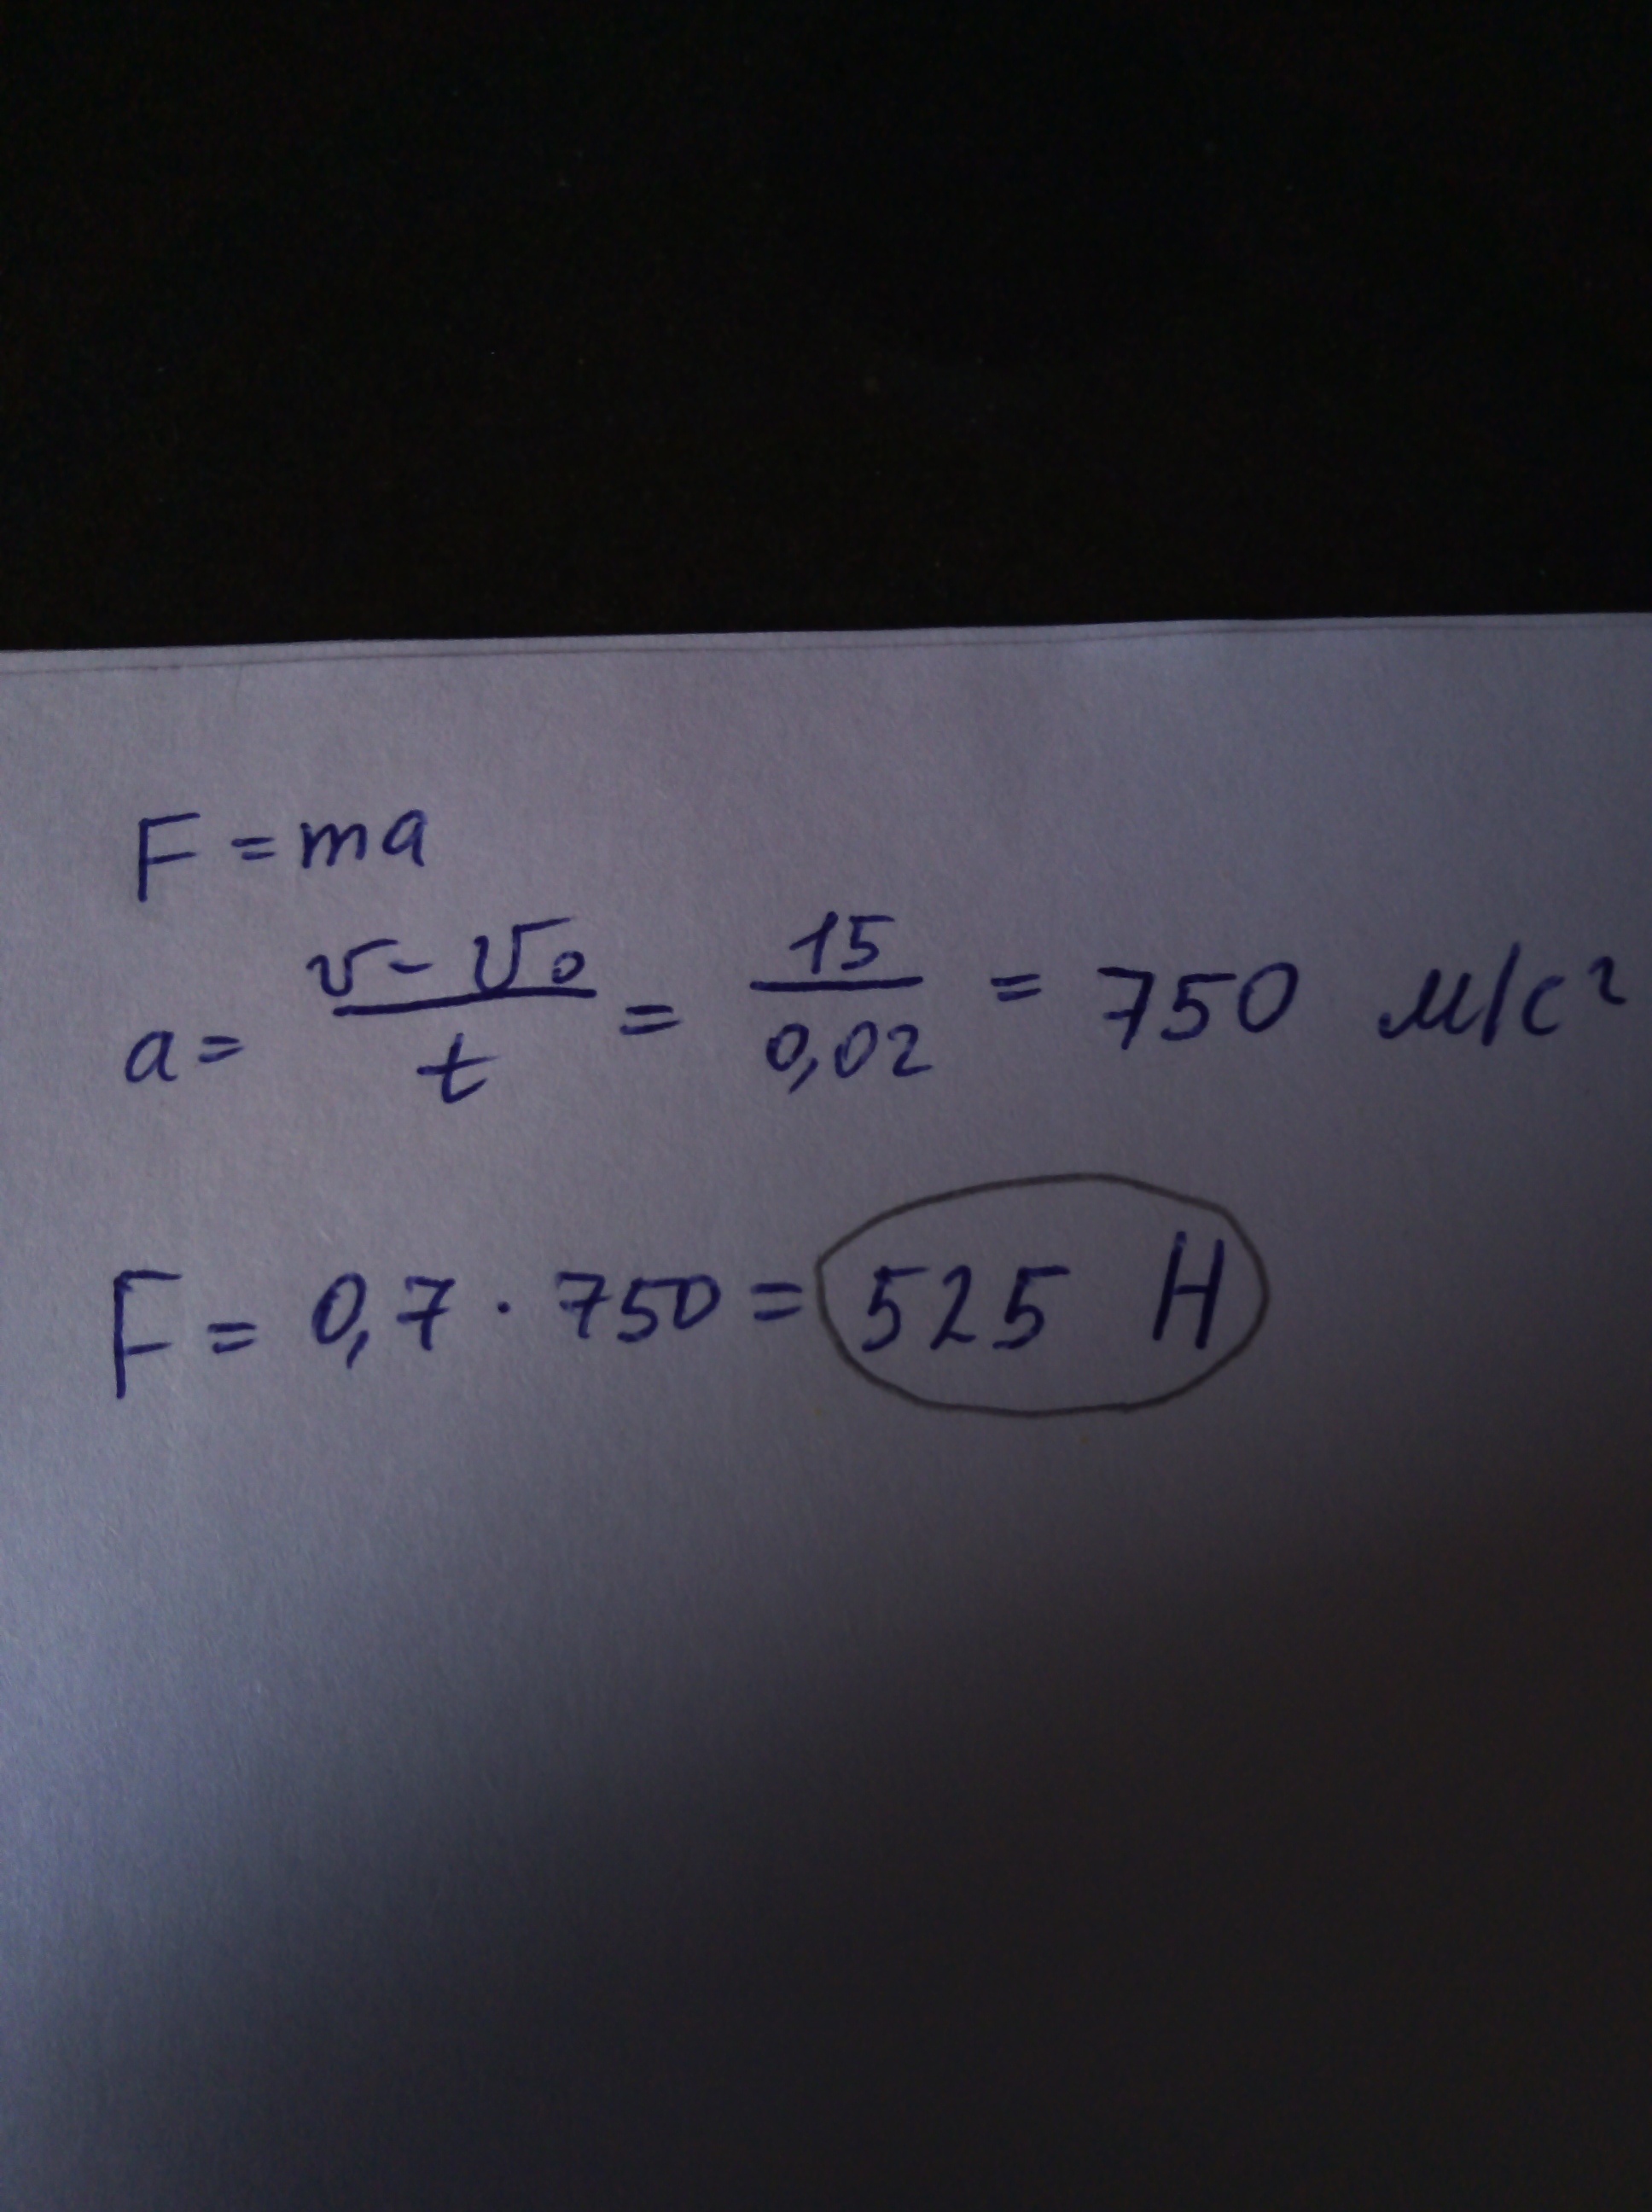 F = ma
a = v - v₀ / t = 15 / 0,02 = 750 м/с²
F = 0,7 · 750 = 525 Н